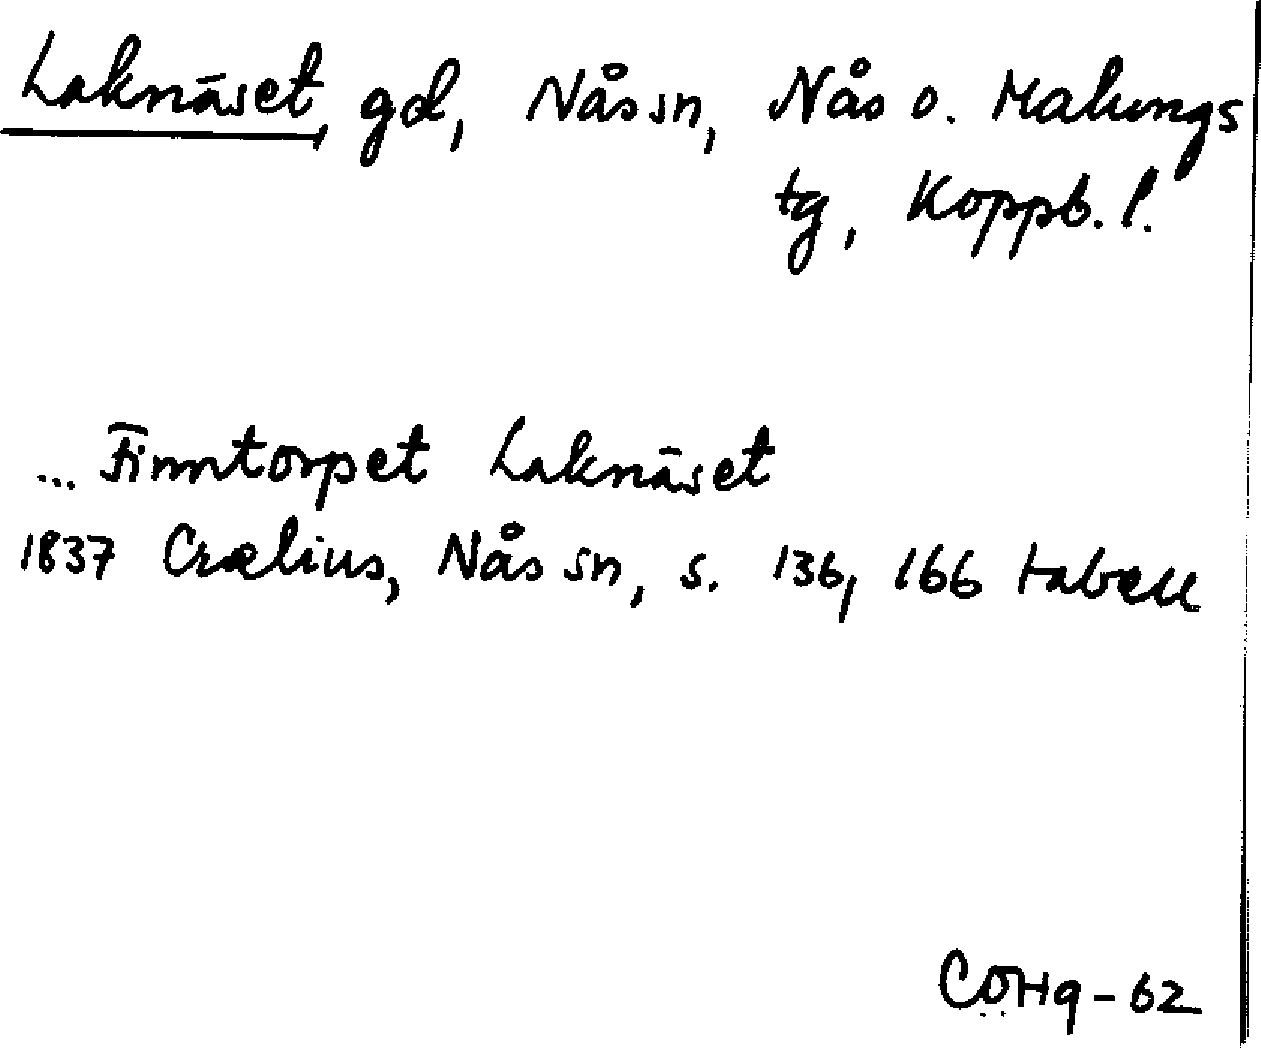 Laknäset, gd, Nås sn, Nås o. Malungs
tg, Koppb. l.
... Finntorpet Laknäset
1837 Crælius, Nås sn, s. 136, 166 tabell
CÖHg-62